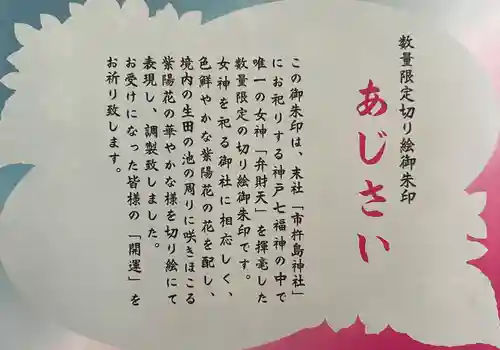 数量限定切り絵御朱印
あじさい
この御朱印は、末社「市杵島神社」
にお祀りする神戸七福神の中で
唯一の女神「弁財天」を揮毫した
数量限定の切り絵御朱印です。
女神を祀る御社に相応しく、
色鮮やかな紫陽花の花を配し、
境内の生田の池の周りに咲きほこる
紫陽花の華やかな様を切り絵にて
表現し、調製致しました。
お受けになった皆様の「開運」を
お祈り致します。